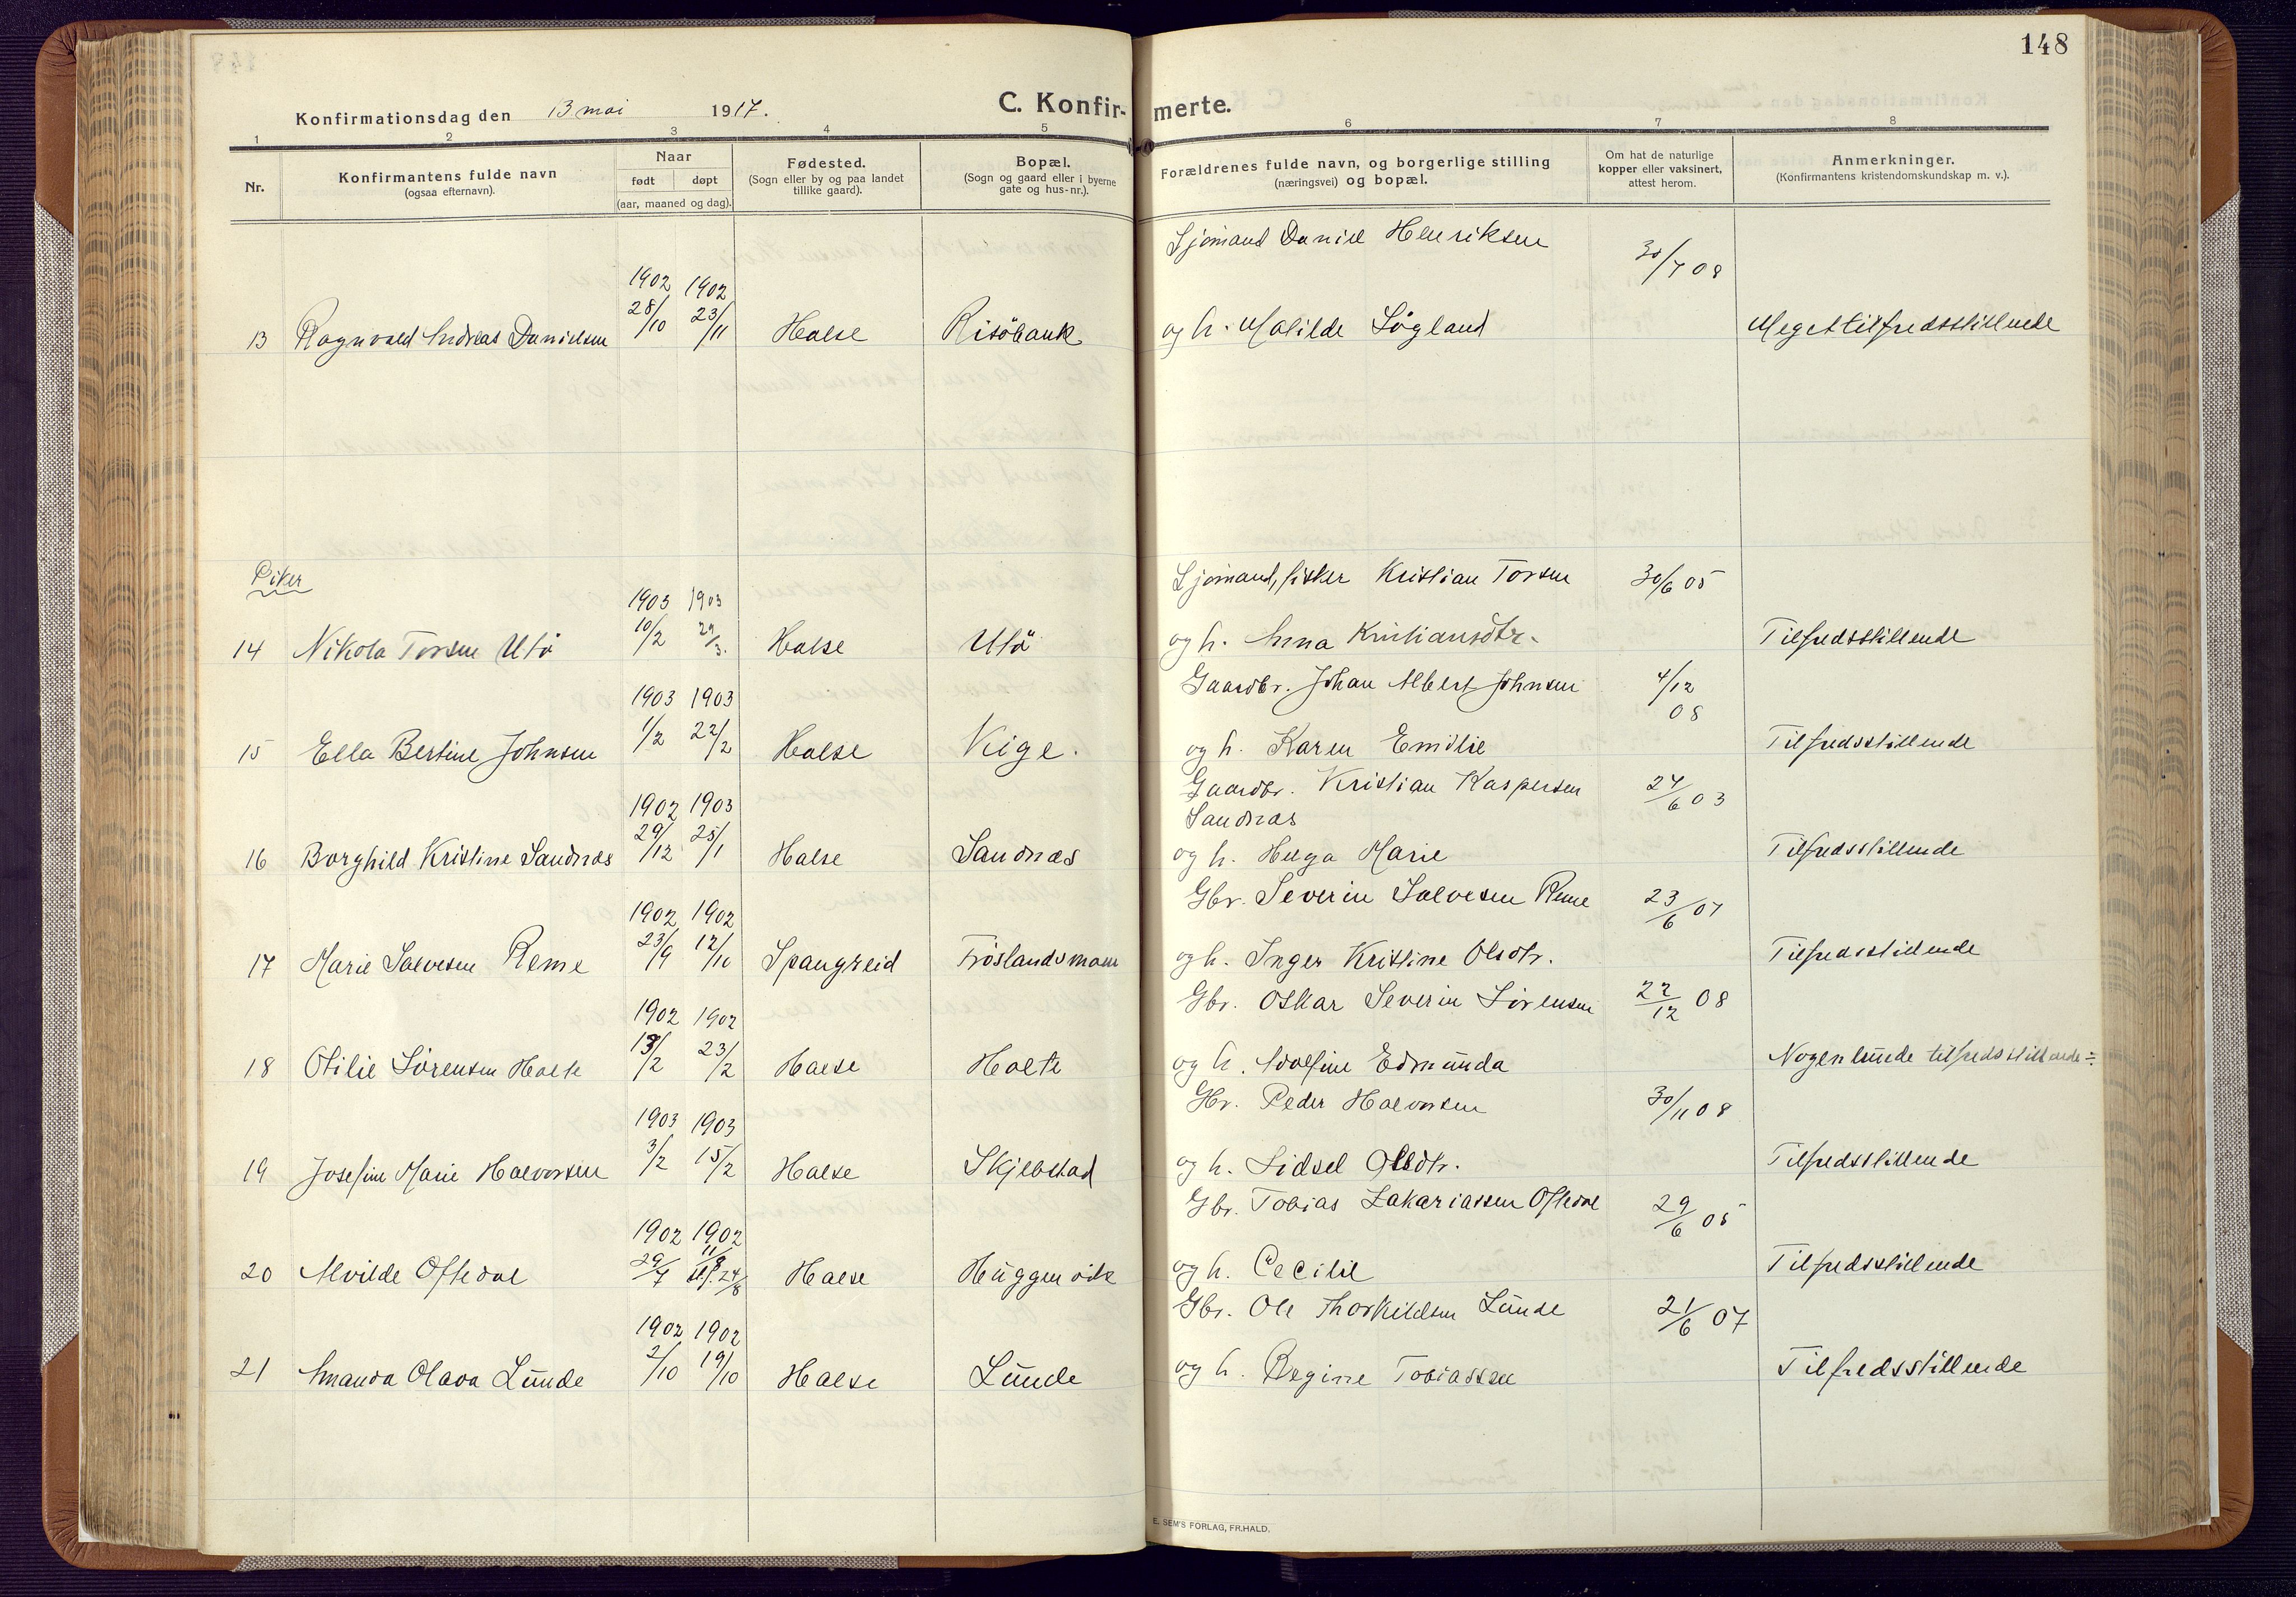 148
Konfirmationsdag den 13 mai 1917.
C. Konfirmerte.
1 2 3 4 5 6 7 8
Nr.
Konfirmantens fulde navn
(ogsaa efternavn).
Naar
født døpt
(aar, maaned og dag).
Fødested.
(Sogn eller by og paa landet
tillike gaard).
Bopæl.
(Sogn og gaard eller i byerne
gate og hus-nr.).
Forældrenes fulde navn, og borgerlige stilling
(næringsvei) og bopæl.
Om hat de naturlige
kopper eller vaksinert,
attest herom.
Anmerkninger.
(Konfirmantens kristendomskundskap m. v.).
Sjømand Daniel Henriksen 30/7 08
1902 1902
13 Ragnvald Andreas Danielsen 28/10 23/11 Halse Risöbank og h. Malilde Lögland Meget tilfredsstillende
Piker
Sjømand, fisker Kristian Torsen 30/6 05
1903 1903
14 Nikola Torsen Utö 10/2 29/3. Halse Utö og h. Anna Kristiansdtr. Tilfredsstillende
Gaardbr. Johan Albert Johnsen 4/12 08
1903 1903
15 Ella Bertine Johnsen 1/2 22/2 Halse Kige. og h. Karen Emilie Tilfredsstillende
Gaardbr. Kristian Kaspersen 24/6 03
Sandnæs
1902 1903
16 Borghild Kristine Sandnæs 29/12 25/1 Halse Sandnæs og h. Helga Marie Tilfredsstillende
Gbr. Severin Salvesen Reme 23/6 07
1902 1902
17 Marie Salvesen Reme 23/9 12/10 Spangreid Fröslandsmoen og h. Inger Kristine Olsdtr. Tilfredsstillende
Gbr. Oskar Severin Sörensen 22/12 08
1902 1902
18 Otilie Sörensen Holte 13/2 23/2 Halse Holte og h. Adolfine Edmunda Nogenlunde tilfredsstillende ÷
Gbr. Peder Halvorsen 30/11 08
1903 1903
19 Josefine Marie Halvorsen 3/2 15/2 Halse Skjebstad og h. Sidsel Olsdtr. Tilfredsstillende
Gbr. Tobias Zakariassen Oftedal 29/6 05
1902 1902
20 Alvilde Oftedal 29/7 11/8 st f. 24/8 Halse Huggenvik og h. Cecilie Tilfredsstillende
Gbr. Ole Thorkildsen Lunde 21/6 07
1902 1902
21 Amanda Olava Lunde 2/10 19/10 Halse Lunde og h. Regine Tobiassen Tilfredsstillende
E. SEM'S FORLAG, FR.HALD.